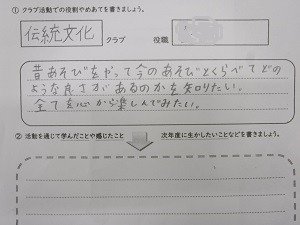 ① クラブ活動での役割やめあてを書きましょう。
伝統文化 クラブ 役職
昔あそびをやって今のあそびとくらべてどの
ような良さがあるのかを知りたい。
全てを心から楽しんでみたい。
② 活動を通じて学んだことや感じたこと 次年度に生かしたいことなどを書きましょう。